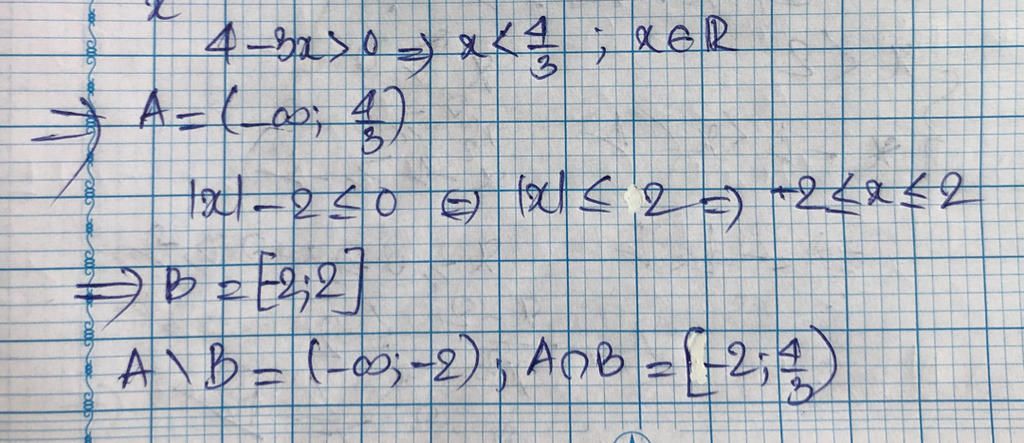 x
4 - 3x > 0 => x < 4/3 ; x ∈ ℝ
=> A = (-∞; 4/3)
|x| - 2 ≤ 0 <=> |x| ≤ 2 => -2 ≤ x ≤ 2
=> B = [-2; 2]
A \ B = (-∞; -2) ; A ∩ B = [-2; 4/3)